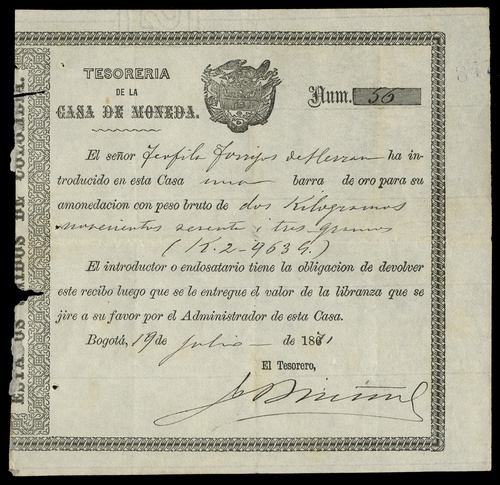 ESTADOS UNIDOS DE COLOMBIA.
TESORERIA
DE LA
CASA DE MONEDA.
Num. 56
El señor Teofila Torrijos de Herran ha in-
troducido en esta Casa una barra de oro para su
amonedacion con peso bruto de dos Kilogramos
novecientos sesenta i tres gramos
(K. 2-963 G.)
El introductor o endosatario tiene la obligacion de devolver
este recibo luego que se le entregue el valor de la libranza que se
jire a su favor por el Administrador de esta Casa.
Bogotá, 19 de julio de 1871
El Tesorero,